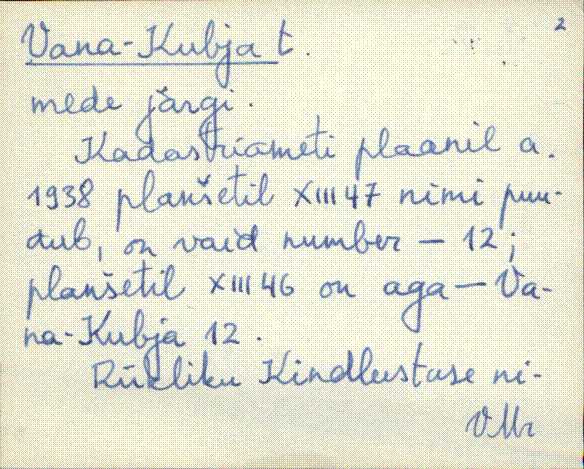 2
Vana-Kubja t.
mede järgi.
Kadastriameti plaanil a.
1938 planšetil XIII 47 nimi puu-
dub, on vaid number – 12;
planšetil XIII 46 on aga – Va-
na-Kubja 12.
Riikliku Kindlustuse ni-
VMr